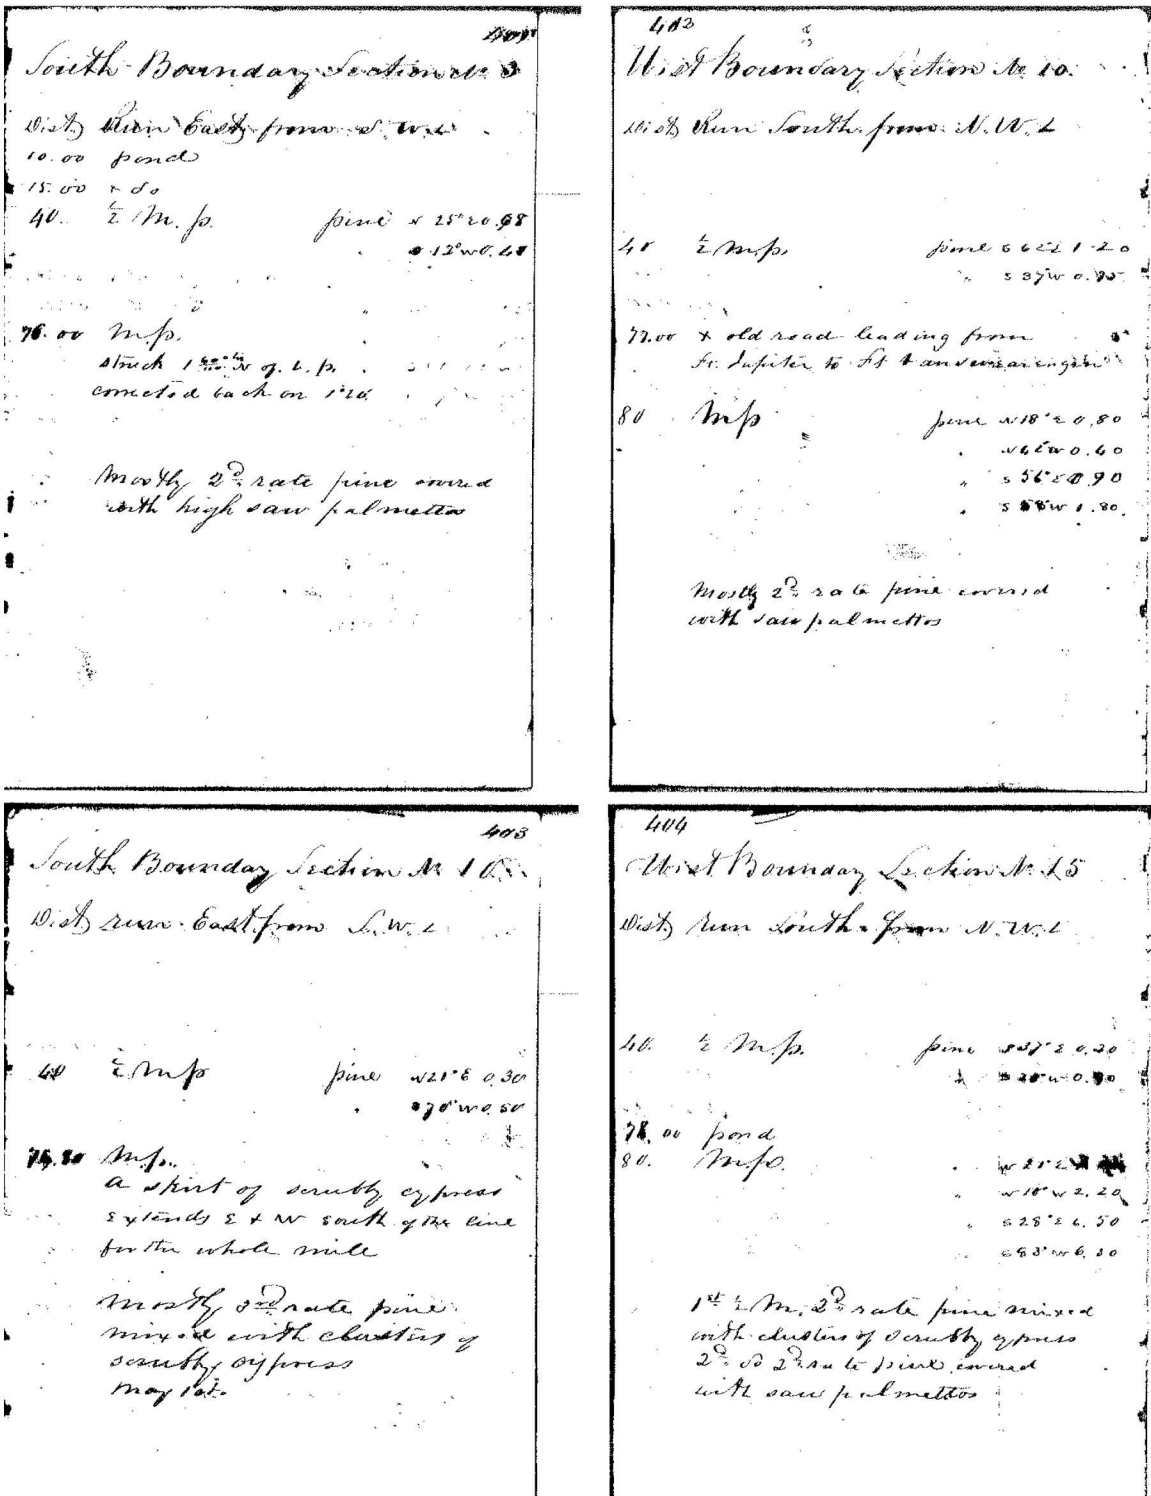 South Boundary Section No 3
Dist) Run East from S. W. C
10.00 pond
15.00 x do
40. ½ M. p. pine N 25° E 0.98
12° W 0.40
76.00 M. p.
struck 1 N of C. p.
corrected back on 1°20
Mostly 2d rate pine covered
with high saw palmettos
403
West Boundary Section No 10.
Dist) Run South from N. W. C
40 ½ M. p. pine S 62 E 1.20
" S 37 W 0.95
77.00 x old road leading from
Ft. Jupiter to Ft
80 M p pine N 18° E 0.80
" N 62 W 0.60
" S 56 E 0.90
" S W 1.80
Mostly 2d rate pine covered
with saw palmettos
403
South Boundary Section No 10
Dist) run East from S. W. C
40 ½ M p pine N 21° E 0.30
" 70° W 0.50
M. p.
A skirt of scrubby cypress
extends E & W south of the line
for the whole mile
Mostly 3rd rate pine
mixed with clusters of
scrubby cypress
May 1st.
404
West Boundary Section No 15
Dist) run South from N. W. C
40. ½ M. p. pine S 37° E 0.30
78.00 pond
80. M. p. " N 21° E
" N 18° W 2.20
" S 28° E 6.50
" S 83° W 6.30
1st ½ M. 2d rate pine mixed
with clusters of scrubby cypress
2d do 2d rate pine covered
with saw palmettos